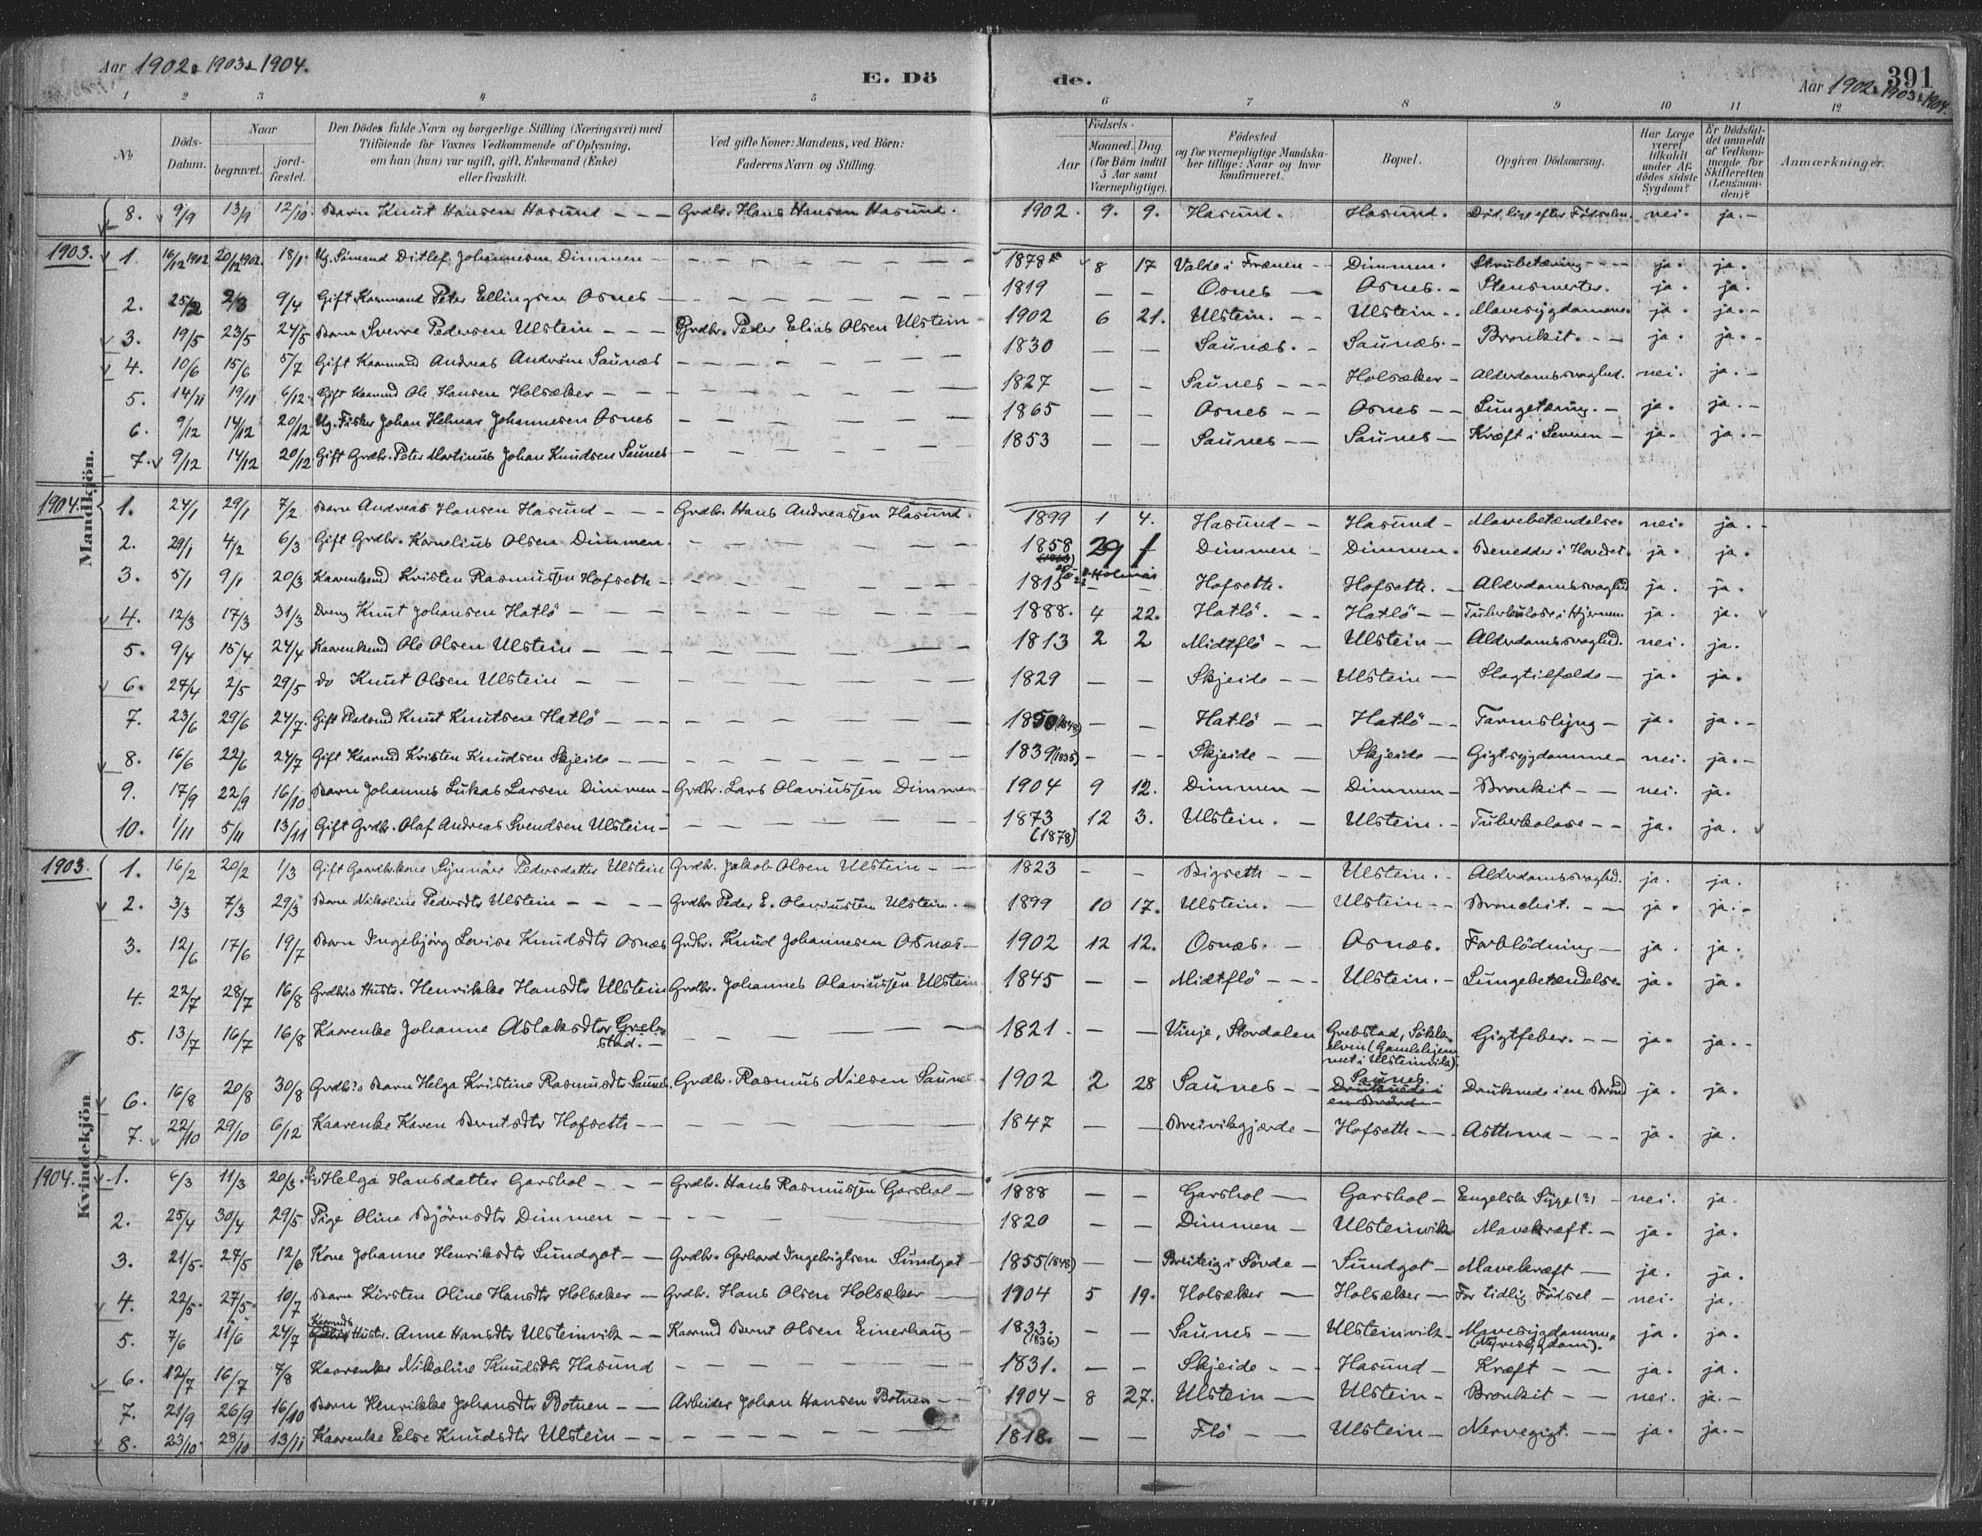 Aar 1902, 1903 & 1904.
E. Dö
de.
391
Aar 1902, 1903 & 1904.
1 2 3 4 5 6 7 8 9 10 11 12
No
Döds-Datum.
Naar
begravet.
jord-fæstet.
Den Dödes fulde Navn og borgerlige Stilling (Næringsvei) med Tilföiende för Voxnes Vedkommende af Oplysning, om han (hun) var ugift, gift, Enkemand (Enke) eller fraskilt.
Ved gifte Koner: Mandens, ved Börn: Faderens Navn og Stilling.
Födsels-
Aar
Maaned. Dag
(for Börn indtil 5 Aar samt Værnepligtige).
Födested og for værnepligtige Mandskaber tillige: Naar og hvor konfirmeret.
Bopæl.
Opgiven Dödsaarsag.
Har Læge været tilkaldt under Afdödes sidste Sygdom?
Er Dödsfaldet anmeldt af Vedkommende for Skifteretten (Lensmanden)?
Anmærkninger.
Mandkjön.
8. 9/9 13/9 12/10 Barn Knut Hansen Hasund — — — Grdbr. Hans Hansen Hasund. 1902. 9. 9. Hasund. Hasund. Död lige efter Födselen. nei. ja. —
1903. 1. 16/12 1902 20/12 1902. 18/1. Ug. Sömand Ditlef Johannesen Dimmen — 1878 8 17 Valde i Frænen — Dimmen. Strubetæring — ja. ja.
2. 25/2 2/3 9/4 Gift Kaarmand Peter Ellingsen Osnes — 1819 — — Osnes — Osnes. — Stensmerter. ja. ja.
3. 19/5 23/5 24/5 Barn Sverre Pedersen Ulstein — — — Grdbr. Peder Elias Olsen Ulstein 1902 6 21. Ulstein. — — Ulstein — . Mavesygdomme. ja. ja. —
4. 10/6 15/6 5/7 Gift Kaarmand Andreas Andersen Saunæs — 1830 — — Saunæs. — Saunæs. — Bronkit. — — ja. ja. —
5. 14/11 19/11 6/12. Gift Kaarmd Ole Hansen Holsæker — 1827 — — Saunes — — — Holsæker — Alderdomssvaghed. nei. ja. —
6. 9/12 14/12 20/12 Ug. Fisker Johan Helmar Johannesen Osnes 1865 — — Osnes — — Osnes — — Lungetæring. — ja. ja. —
7. 9/12 14/12 20/12 Gift Grdbr. Peter Martinus Johan Knudsen Saunes — 1853 — — Saunes — — Saunes — Kræft i — ja. ja. —
1904. 1. 24/1 29/1 7/2 Barn Andreas Hansen Hasund — — — Grdbr. Hans Andreassen Hasund. 1899 1 4. Hasund — — Hasund — Mavebetændelse. nei. ja. —
2. 29/1 4/2 6/3 Gift Grdbr. Kornelius Olsen Dimmen 1858 29 1 Dimmen — Dimmen. Benedder i Hovedet. ja. ja.
3. 5/1 9/1 20/3 Kaarenkemd Kristen Rasmussen Hofseth — 1815 — — Hofseth. Hofseth. — Alderdomssvaghed ja. ja.
4. 12/3 17/3 31/3 Dreng Knut Johansen Hatlö — 1888. 4 22. Hatlö. — — Hatlö — — Tuberkulose i Hjernen ja. ja.
5. 9/4 15/4 24/4 Kaarenkemd Ole Olsen Ulstein — 1813 2 2 Midtflö — — Ulstein — Alderdomssvaghed. nei. ja.
6. 27/4 2/5 29/5 do Knut Olsen Ulstein — 1829 — — Skjeide — — Ulstein — Slagtilfælde — ja. ja.
7. 23/6 29/6 24/7. Gift Pladsmd Knut Knutsen Hatlö — 1850 (1848) — — Hatlö — — Hatlö — — Tarmslyng — ja. ja. —
8. 16/6 22/6 24/7 Gift Kaarmd Kristen Knudsen Skjeide — 1839 (1835) — — Skjeide — — Skjeide — Gigtsygdomme — nei. ja. —
9. 17/9 22/9 16/10 Barn Johannes Lukas Larsen Dimmen — Grdbr. Lars Olaviussen Dimmen 1904 9 12. Dimmen — Dimmen — Bronkit — — nei. ja.
10. 1/11 5/11 13/11 Gift Grdbr. Olaf Andreas Svendsen Ulstein — 1873 (1878) 12 3. Ulstein. — Ulstein. — Tuberkolose — — ja. ja.
Kvindekjön
1903. 1. 16/2 20/2 1/3 Gift Gaardbr.kone Synnöve Pedersdatter Ulstein Grdbr. Jakob Olsen Ulstein — — 1823 — — Bigseth — — Ulstein. — Alderdomssvaghed. ja. ja.
2. 3/3 7/3 29/3 Barn Nikoline Pedersdtr Ulstein — — — Grdbr. Peder E. Olaviussen Ulstein. — 1899 10 17. Ulstein. — Ulstein — — Bronchit. — — ja. ja. —
3. 12/6 17/6 19/7 Barn Ingebjörg Lovise Knudsdtr Osnæs Grdbr. Knud Johannesen Osnæs — 1902 12 12. Osnæs. — Osnæs. Forblödning — ja. ja.
4. 22/7 28/7 16/8 Grdbr.s Hustr. Henrikke Hansdtr Ulstein Grdbr. Johannes Olaviussen Ulstein 1845 — — Midtflö — — — Ulstein. — Lungebetændelse. ja. ja.
5. 13/7 16/7 16/8 Kaarenke Johanne Aslaksdtr Grebstad. — 1821. — — Vinje, Stordalen Grebstad, Sökkelven (Gamlehjemmet i Ulsteinvik). Gigtfeber. — — ja. ja. —
6. 16/8 20/8 30/8 Grdbr's Barn Helga Kristine Rasmusdtr Saunes. Grdbr. Rasmus Nilsen Saunes 1902 2 28 Saunes — — Saunes. Druknede i en Brönd Druknede i en Brönd ja. ja.
7. 22/10 29/10 6/12 Kaarenke Karen Berntsdtr Hofseth — 1847 — — Breivikgjærde — Hofseth — — Asthma — — — ja. ja.
1904. 1. 6/3 11/3 20/3. Helga Hansdatter Garshol — — — Grdbr. Hans Rasmussen Garshol — 1888 — — Garshol — Garshol — Engelsk Syge (?) — nei. ja.
2. 25/4 30/4 29/5 Pige Oline Björnsdtr Dimmen — 1820 — — Dimmen — Ulsteinvik Mavekræft. — ja. ja.
3. 21/5. 27/5 12/6 Kone Johanne Henriksdtr Sundgot — — Grdbr. Gerhard Ingebrigtsen Sundgot — 1855 (1848) — — Breiteig i Sövde — Sundgot — Mavekræft — ja. ja.
4. 22/5. 27/5. 10/7 Barn Kirsten Oline Hansdtr Holsæker — Grdbr. Hans Olsen Holsæker 1904 5 19. Holsæker — Holsæker — For tidlig Födsel — nei. ja.
5. 7/6 11/6 24/7 Kaarmds Hustr. Anne Hansdtr Ulsteinvik — Kaarmd Bernt Olsen Einerhaug — 1833. (1836) — — Saunes — — Ulsteinvik — Mavesygdomme. (Nyresygdom). ja. ja.
6. 12/7 16/7 7/8 Kaarenke Nikoline Knudsdtr Hasund 1831. — — Skjeide — — Hasund — Kræft — — ja. ja.
7. 21/9 26/9 16/10 Barn Henrikke Johansdtr Botnen — — Arbeider Johan Hansen Botnen — — 1904 — 8 27. Ulstein — Ulstein — Bronkit — nei. ja. —
8. 23/10. 28/10 13/11 Kaarenke Else Knudsdtr Ulstein — 1818. — — Flö — Ulstein — Nervegigt. — — ja. ja. —